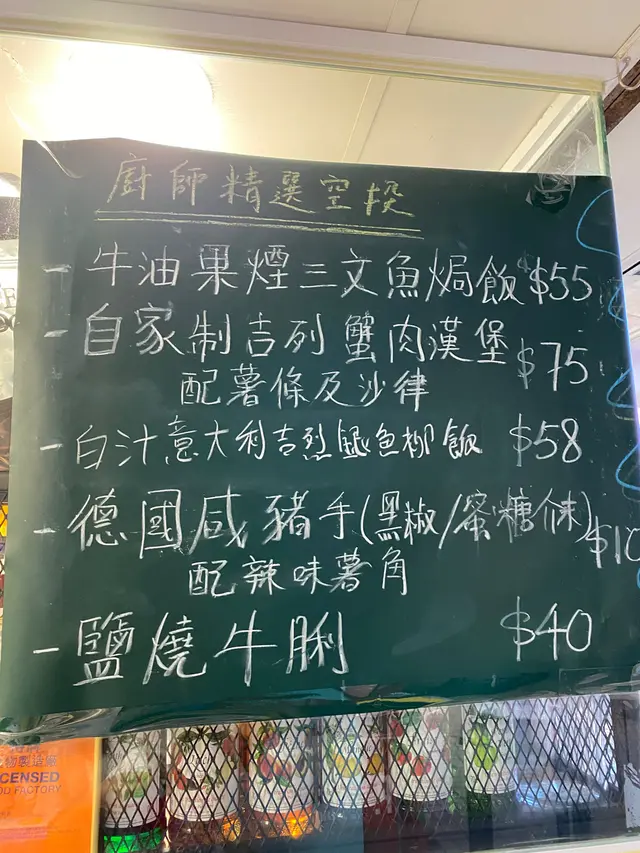 廚師精選空投
- 牛油果煙三文魚焗飯 $55
- 自家制吉列蟹肉漢堡 $75
配薯條及沙律
- 白汁意大利吉烈鯰魚柳飯 $58
- 德國咸豬手(黑椒/蜜糖介末) $10
配辣味薯角
- 鹽燒牛脷 $40
物製造廠
CENSED
OD FACTORY